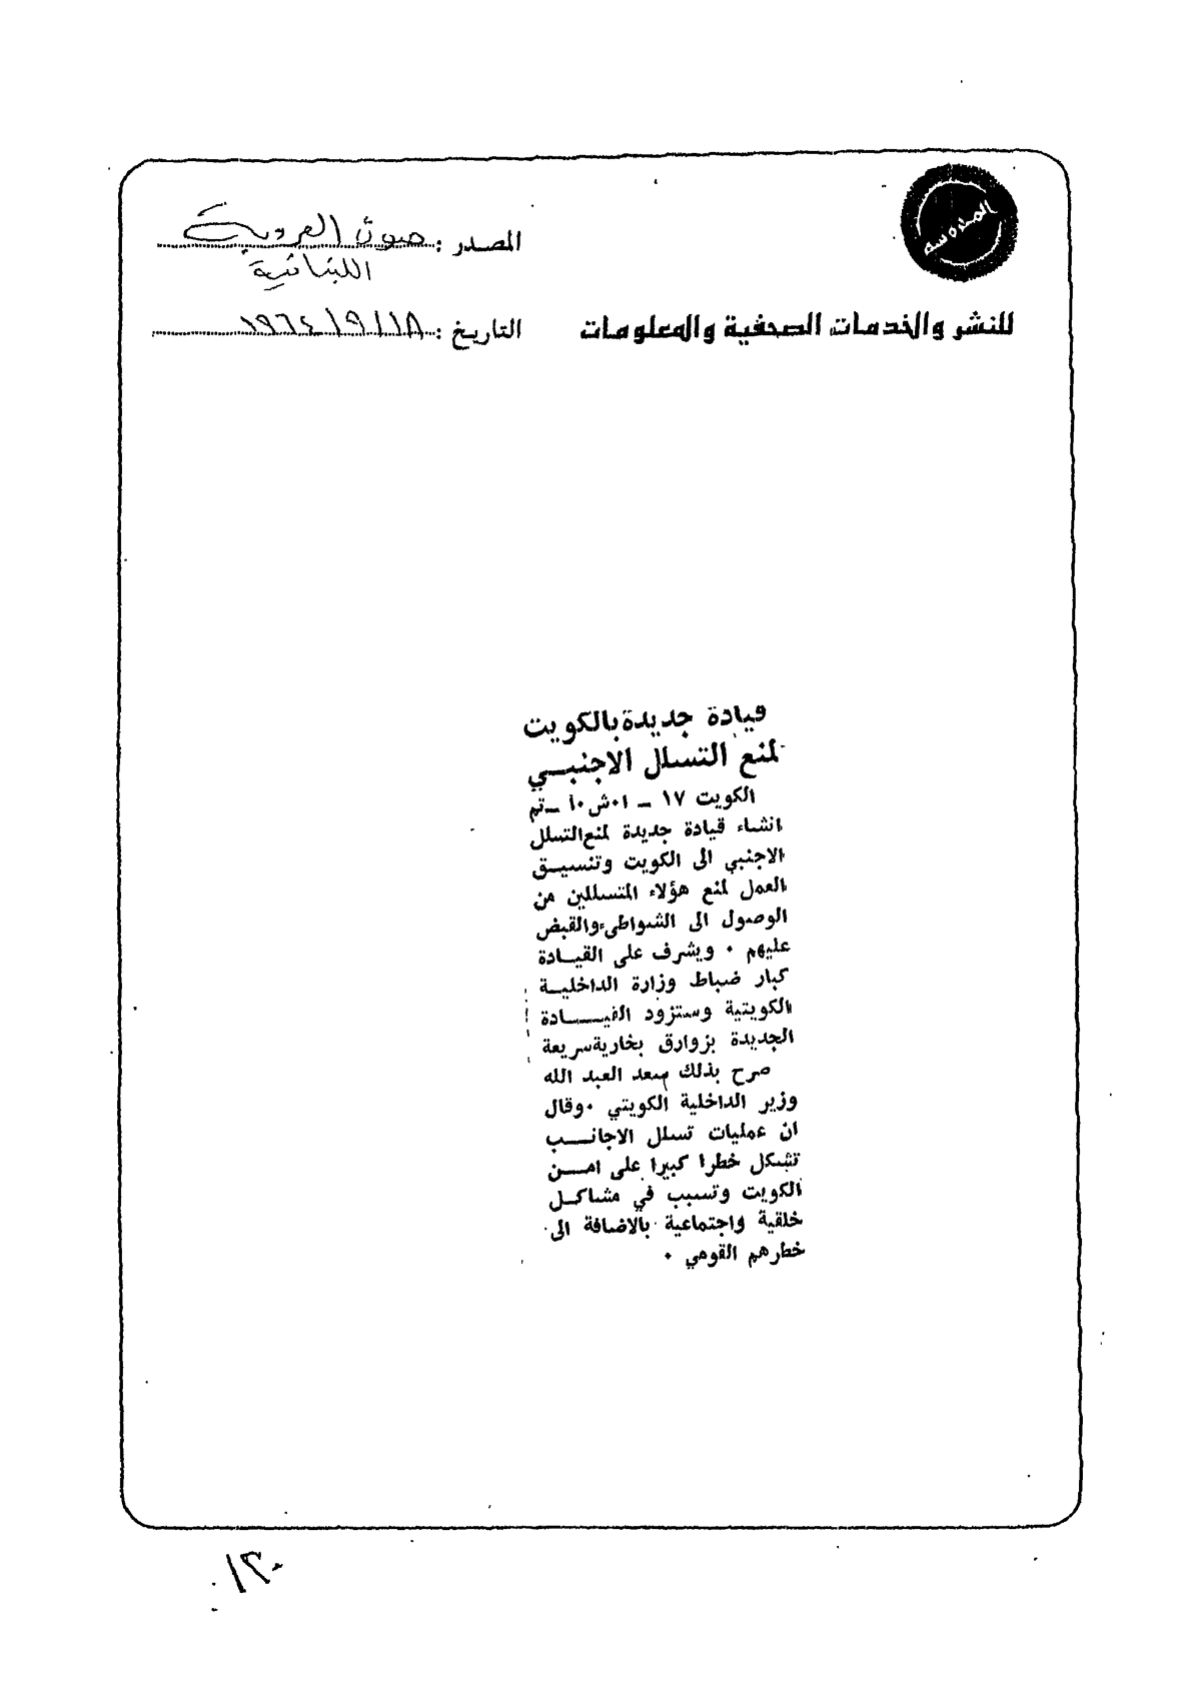 المصدر : صوت العروبة
اللبنانية
للنشر والخدمات الصحفية والمعلومات
التاريخ : ١٩٦٤/٩/١٨
قيادة جديدة بالكويت
لمنع التسلل الاجنبــي
الكويت ١٧ – ا٠ش٠ا – تم
انشاء قيادة جديدة لمنع التسلل
الاجنبي الى الكويت وتنسيــق
العمل لمنع هؤلاء المتسللين من
الوصول الى الشواطىء والقبض
عليهم ٠ ويشرف على القيــادة
كبار ضباط وزارة الداخليــة
الكويتية وستزود القيـــــادة
الجديدة بزوارق بخارية سريعة
صرح بذلك سعد العبد الله
وزير الداخلية الكويتي ٠ وقال
ان عمليات تسلل الاجانــب
تشكل خطرا كبيرا على امــن
الكويت وتسبب في مشاكــل
خلقية واجتماعية بالاضافة الى
خطرهم القومي ٠
١٢٠